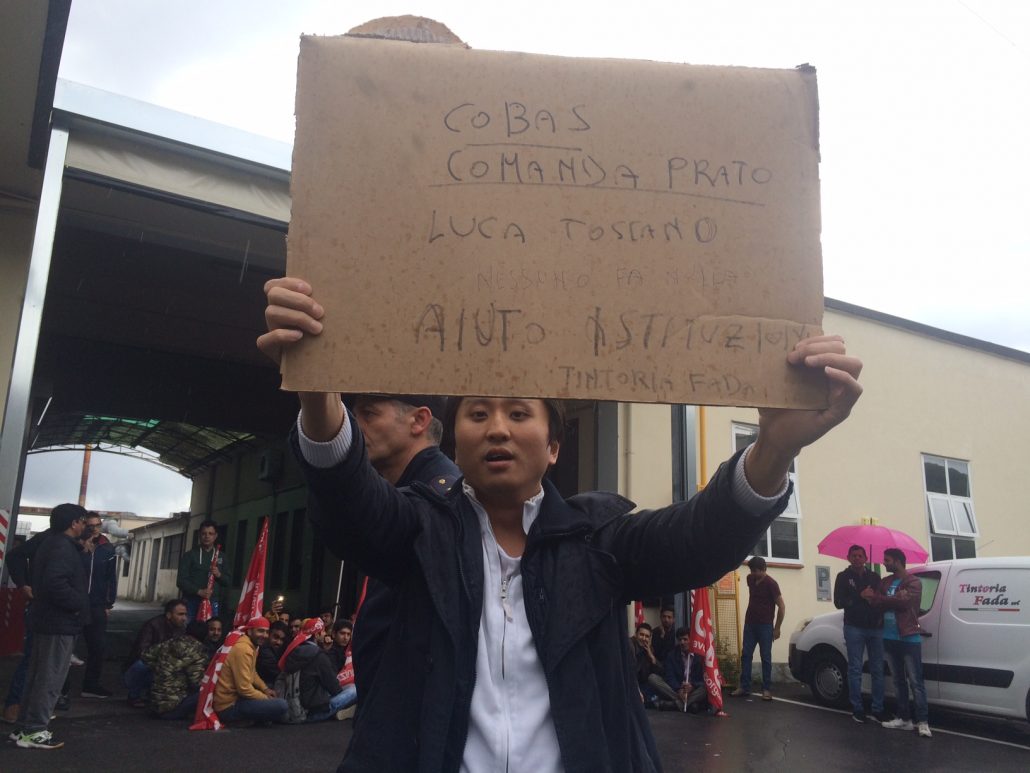 COBAS
COMANDA PRATO
LUCA TOSCANO
NESSUNO FA NULLA
AIUTO ISTITUZIONI
TINTORIA FADA
Tintoria
Fada srl
P